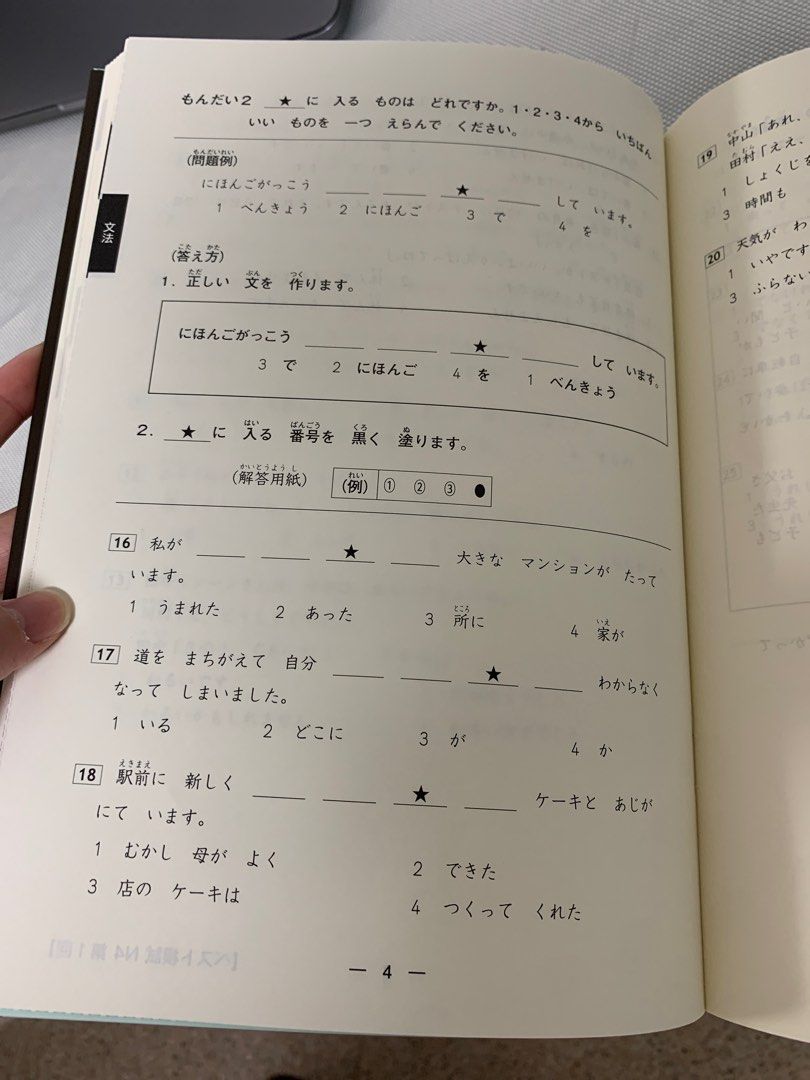 もんだい2 ★ に 入る ものは どれですか。1・2・3・4から いちばん
いい ものを 一つ えらんで ください。
もんだいれい
(問題例)
にほんごがっこう ____ ____ ★ ____ して います。
1 べんきょう 2 にほんご 3 で 4 を
文法
こた かた
(答え方)
ただ ぶん つく
1. 正しい 文を 作ります。
にほんごがっこう ____ ____ ★ ____ して います。
3 で 2 にほんご 4 を 1 べんきょう
はい ばんごう くろ ぬ
2. ★ に 入る 番号を 黒く 塗ります。
かいとうようし れい
(解答用紙) (例) ① ② ③ ●
16 私が ____ ____ ★ ____ 大きな マンションが たって
います。
ところ いえ
1 うまれた 2 あった 3 所に 4 家が
17 道を まちがえて 自分 ____ ____ ★ ____ わからなく
なって しまいました。
1 いる 2 どこに 3 が 4 か
えきまえ
18 駅前に 新しく ____ ____ ★ ____ ケーキと あじが
にて います。
1 むかし 母が よく 2 できた
3 店の ケーキは 4 つくって くれた
— 4 —
19 中山「あれ、
田村「ええ、
1 しょくじを
3 時間も
20 天気が わ
1 いやです
3 ふらない